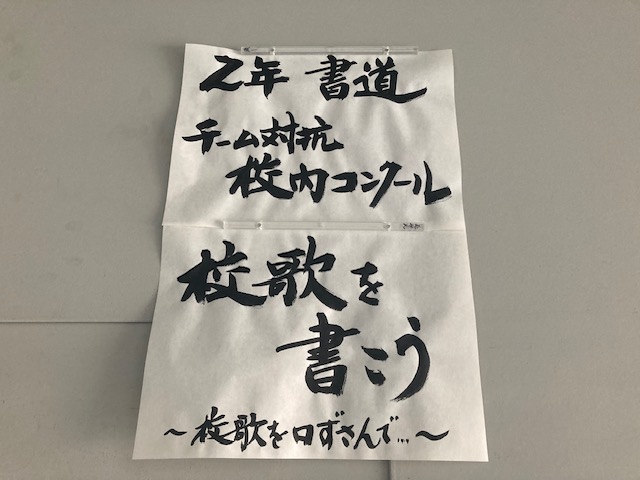 2年 書道
チーム対抗
校内コンクール
校歌を
書こう
～校歌を口ずさんで…～